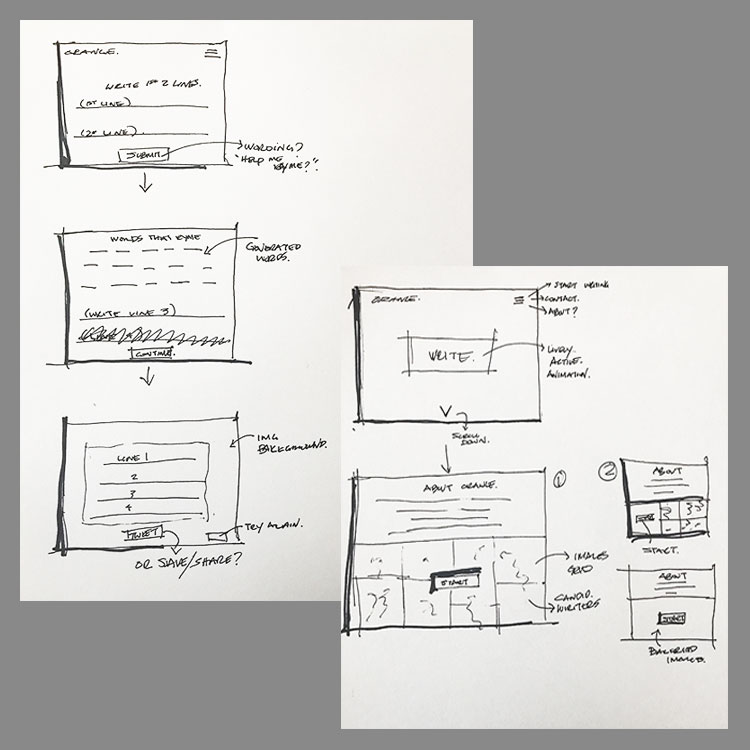 ORANGE.
WRITE 1ST 2 LINES.
(1ST LINE)
(2ND LINE)
SUBMIT
WORDING?
"HELP ME
RYME?".
WORDS THAT RYME
GENERATED
WORDS.
(WRITE LINE 3)
CONTINUE.
IMG
BACKGROUND.
LINE 1
2
3
4
TWEET
TRY AGAIN.
OR SAVE/SHARE?
ORANGE.
START WRITING
CONTACT.
ABOUT?
WRITE.
LIVELY.
ACTIVE.
ANIMATION.
SCROLL
DOWN.
1
ABOUT ORANGE.
START
IMAGES
GRID
CANDID.
WRITERS
2
ABOUT
START.
ABOUT
START
IMAGES.